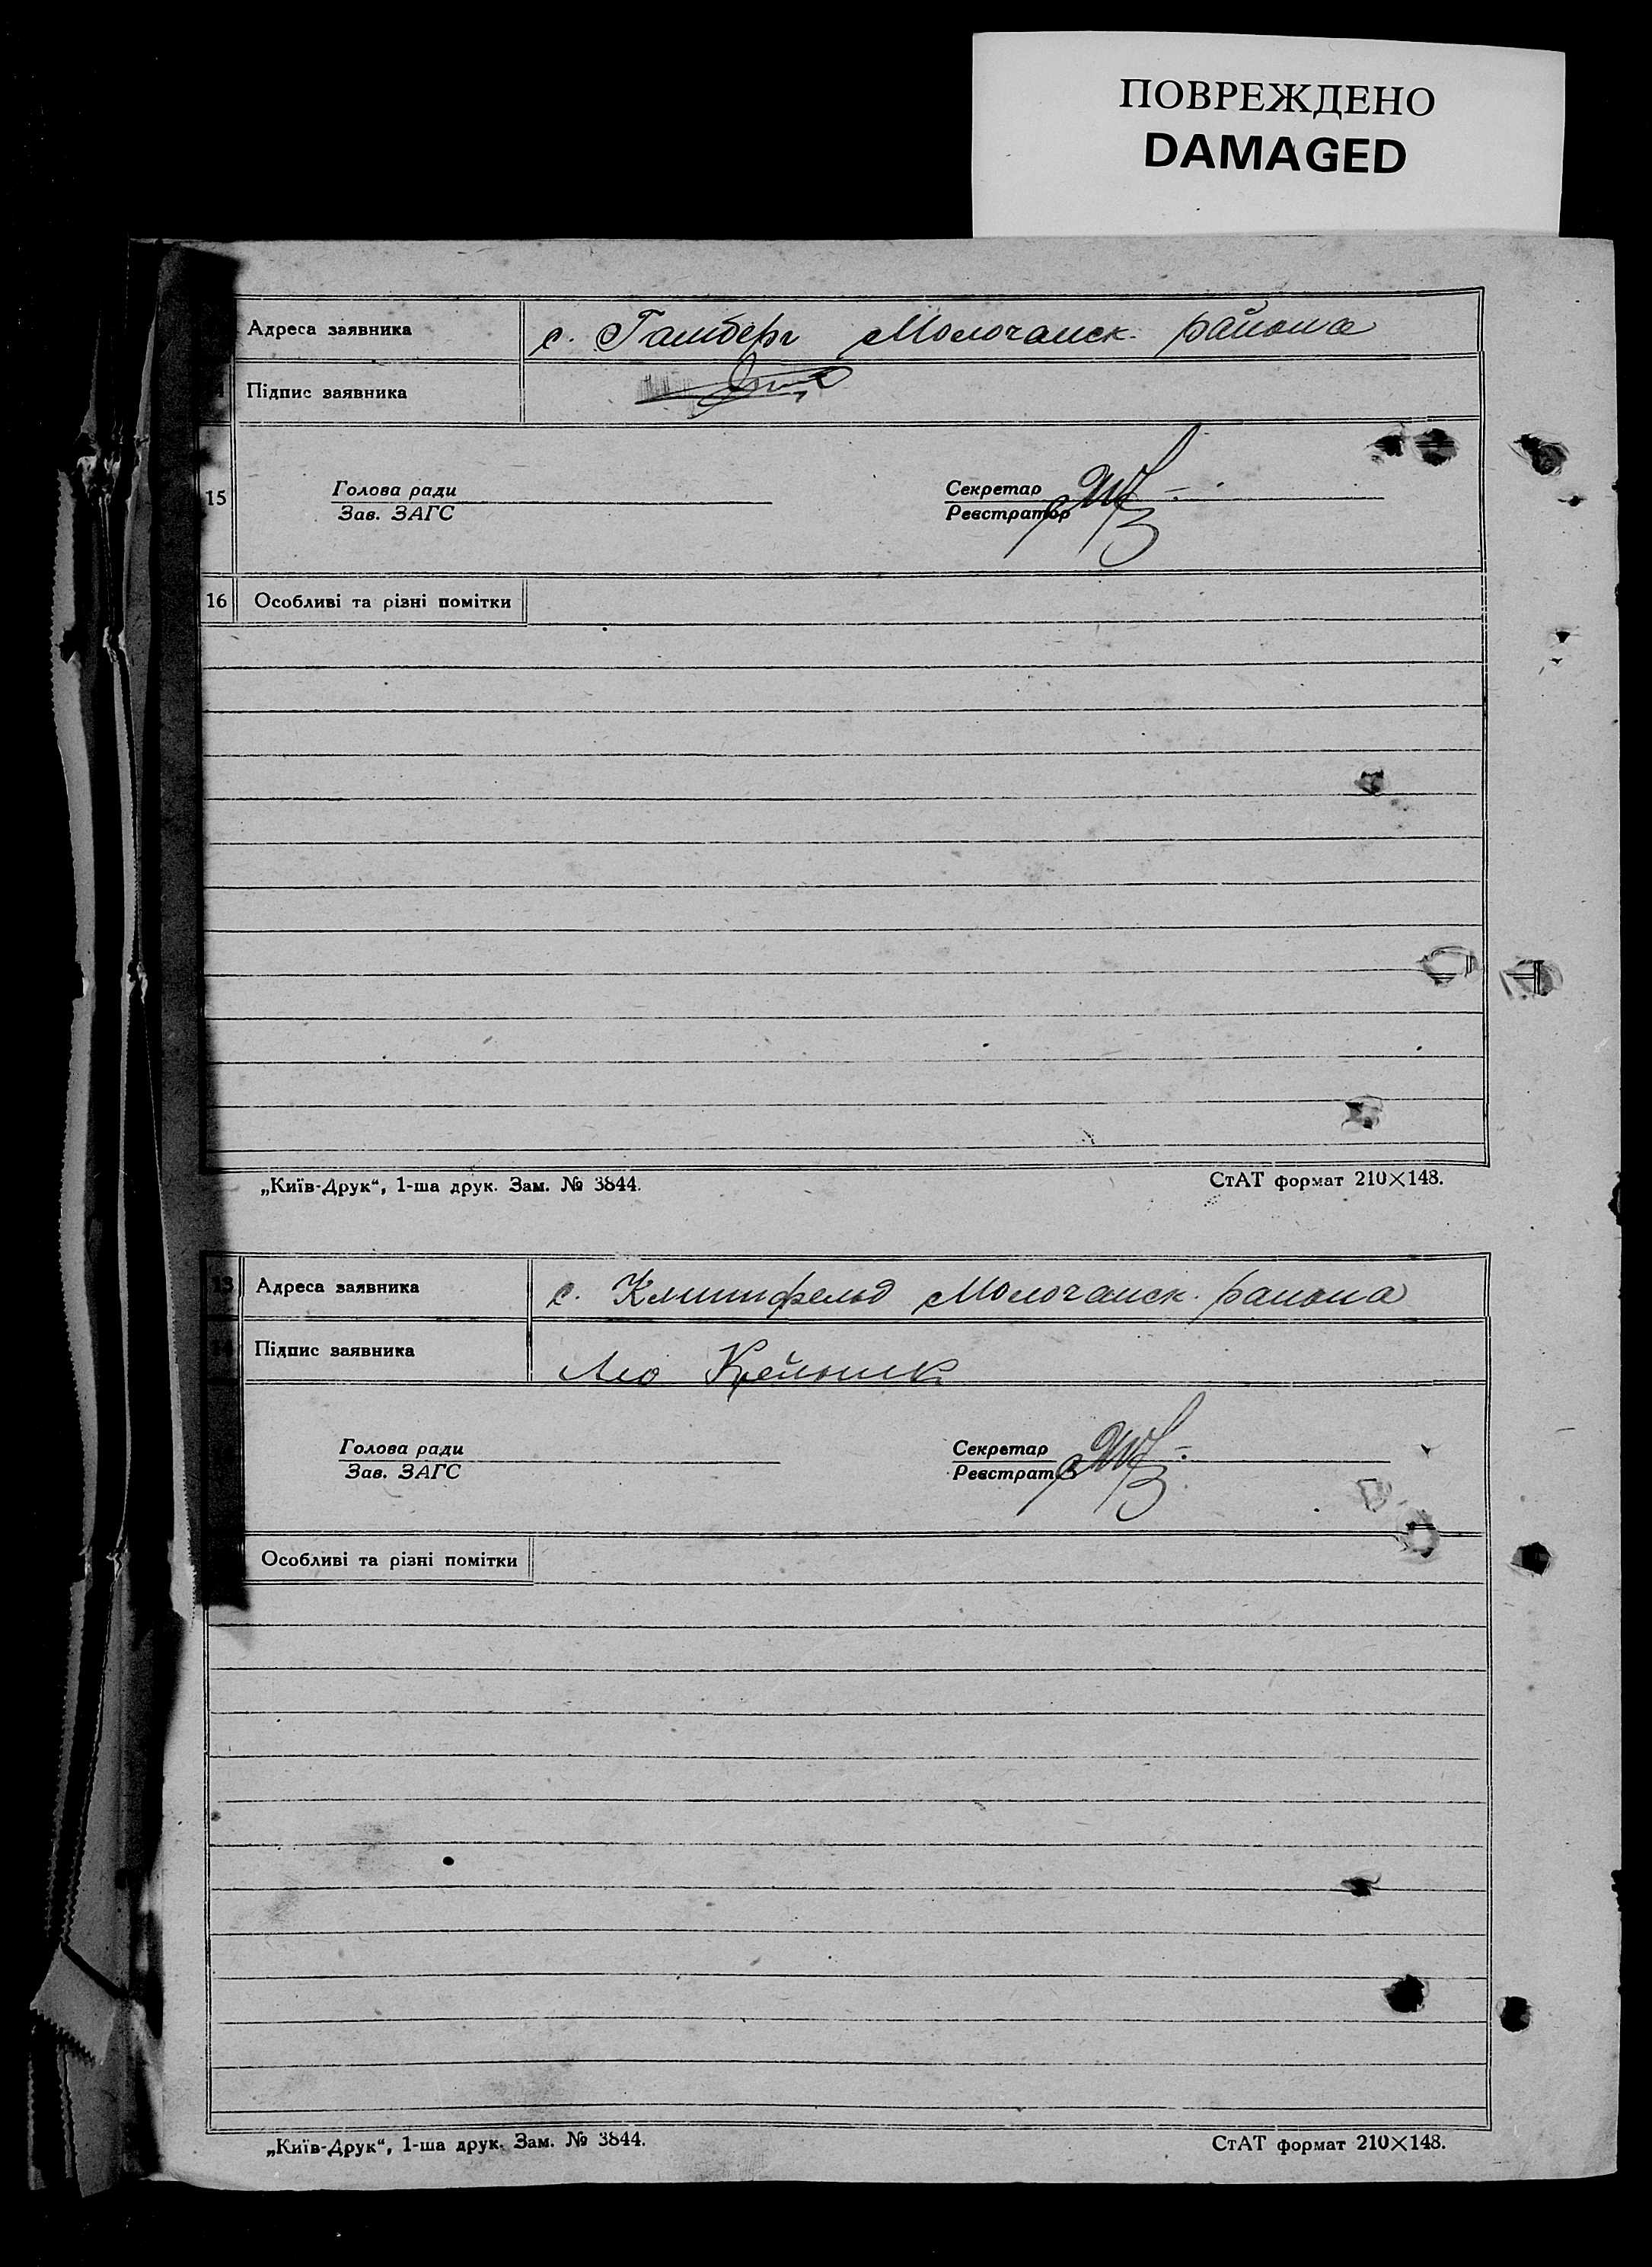 ПОВРЕЖДЕНО
DAMAGED
Адреса заявника с. Гамберг Молочанск. района
Підпис заявника
15
Голова ради
Зав. ЗАГС
Секретар
Реєстратор
16 Особливі та різні помітки
„Київ-Друк“, 1-ша друк. Зам. № 3844.
СтАТ формат 210×148.
13 Адреса заявника с. Клиппфельд Молочанск. района
14 Підпис заявника Лео
Голова ради
Зав. ЗАГС
Секретар
Реєстратор
Особливі та різні помітки
„Київ-Друк“, 1-ша друк. Зам. № 3844.
СтАТ формат 210×148.